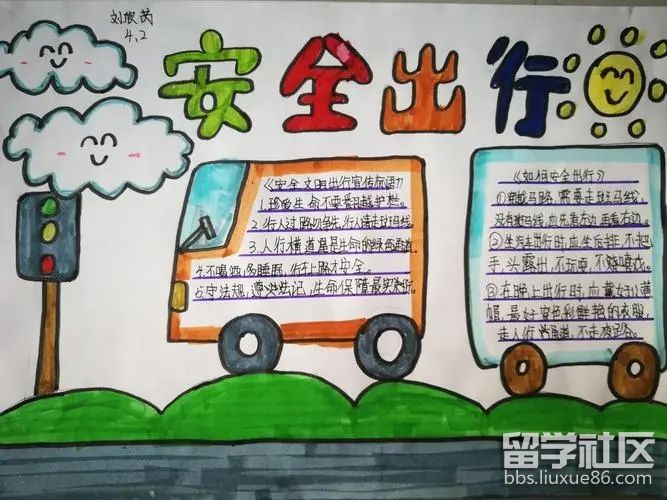 刘欣芮
4.2
安全出行
《安全文明出行宣传标语》
1.珍爱生命不要翻越护栏。
2.行人过路勿争先,行人请走斑马线。
3.人行横道是生命的绿色通道。
4.不喝酒多睡眠,行车上路才安全。
5.守法规,
生命保障最实际。
《如何安全出行》
①穿越马路,需要走斑马线,
没有斑马线,应先看左边,再看右边。
②坐汽车出行时,应坐后排,不把
手、头露出,不玩耍,不嬉戏。
③在晚上出行时,应戴好小黄
帽,最好穿色彩鲜艳的衣服,
走人行
留学社区
bbs.liuxue86.com